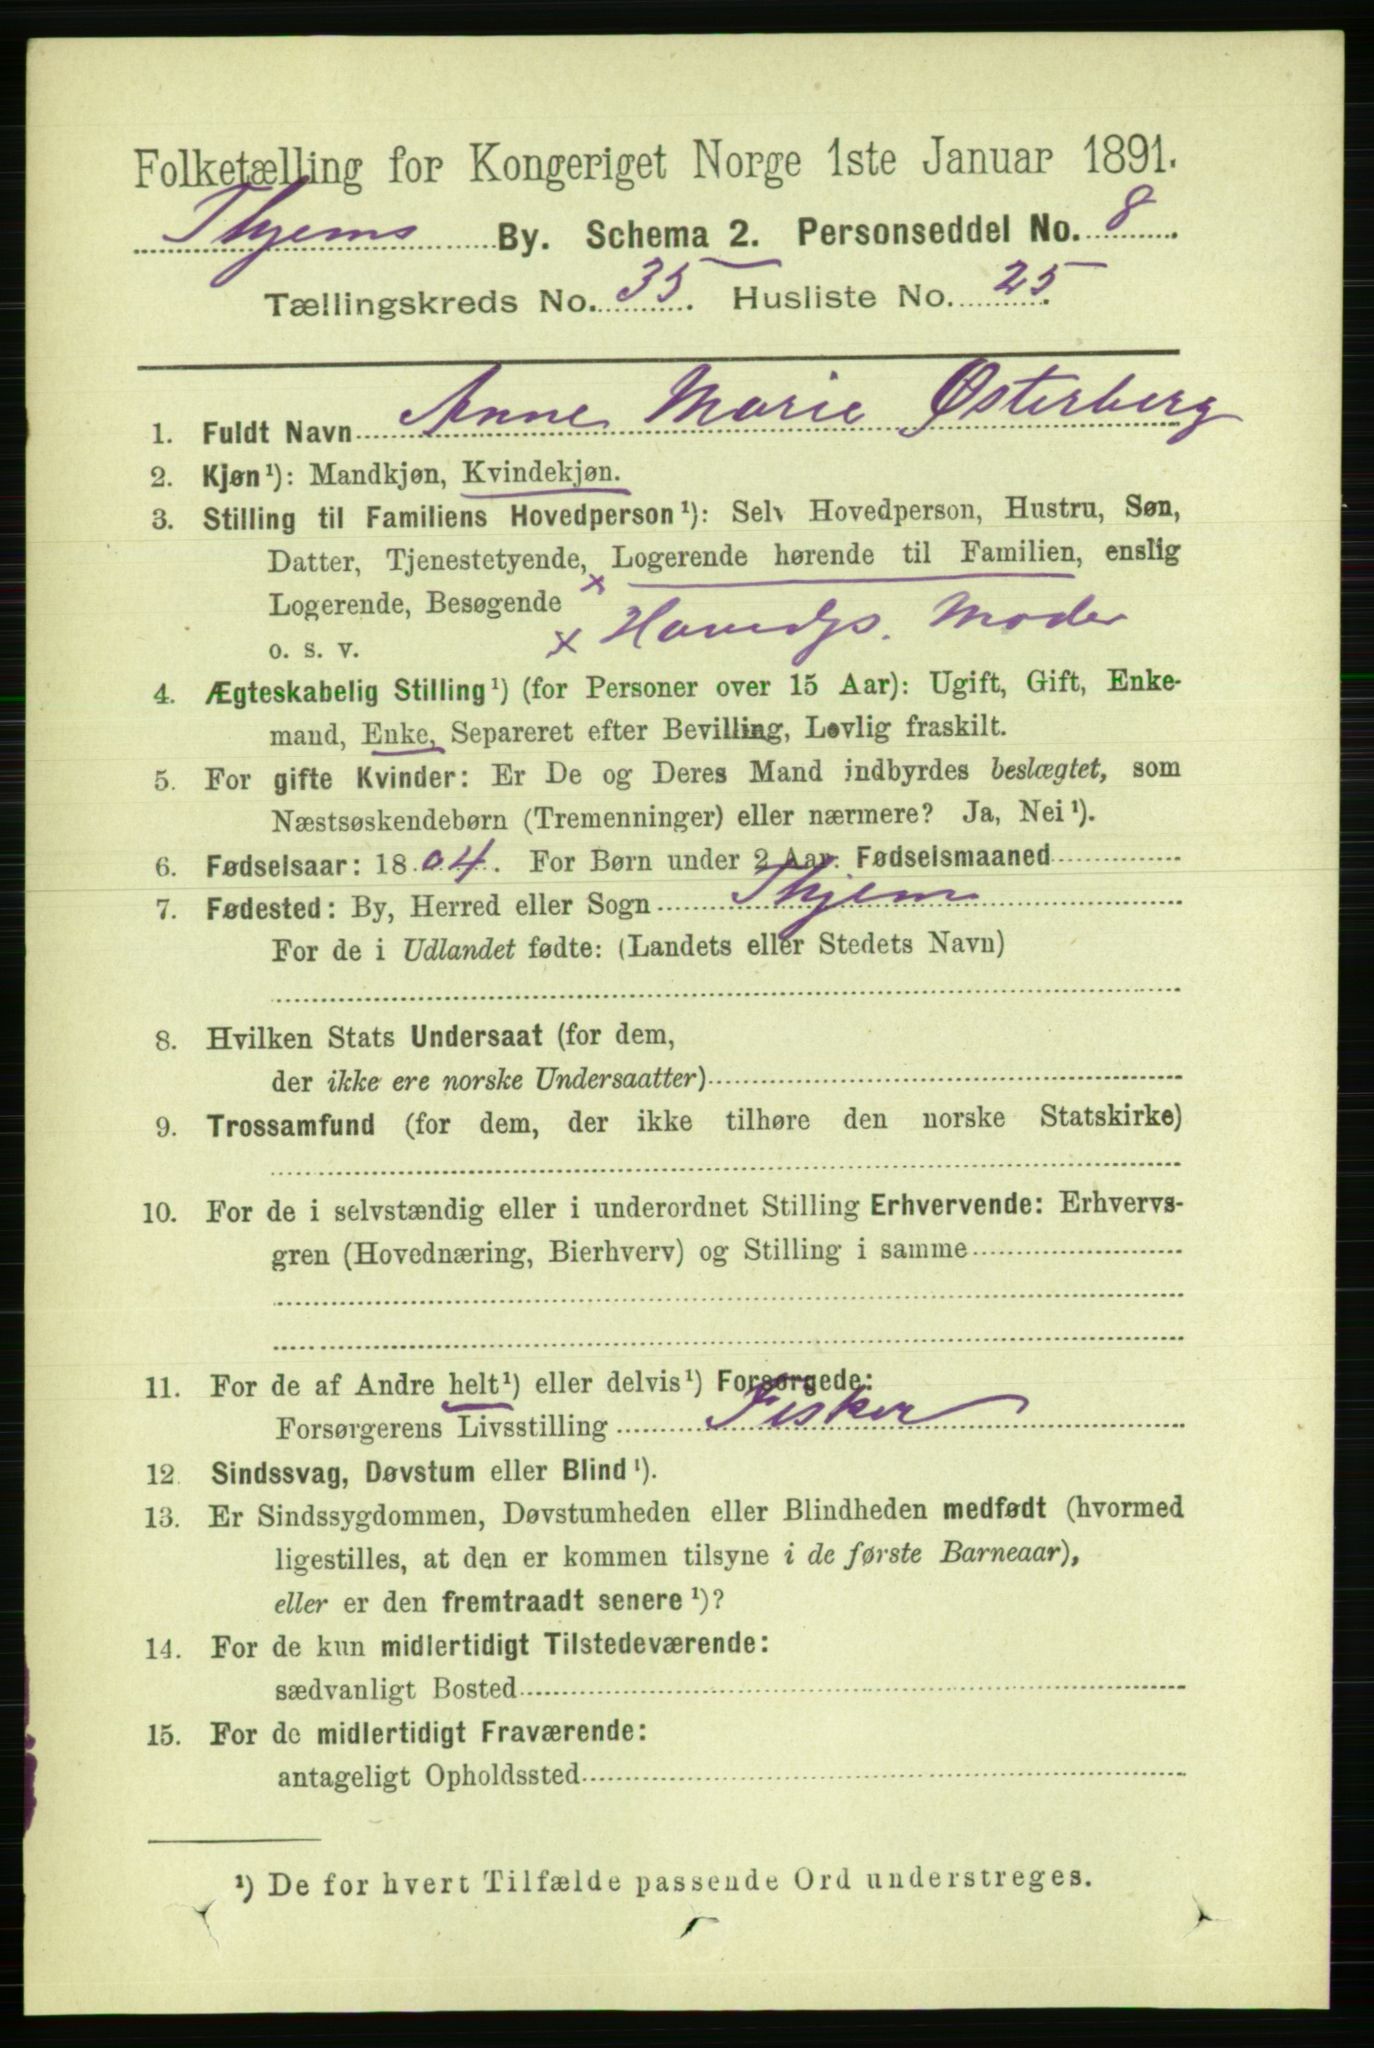 Folketælling for Kongeriget Norge 1ste Januar 1891.
Thjems By. Schema 2. Personseddel No. 8
Tællingskreds No. 35. Husliste No. 25.
1. Fuldt Navn Anne Marie Østerberg
2. Kjøn¹): Mandkjøn, Kvindekjøn.
3. Stilling til Familiens Hovedperson¹): Selv Hovedperson, Hustru, Søn,
Datter, Tjenestetyende, Logerende hørende til Familien, enslig
Logerende, Besøgende x
o. s. v. x Hovedps. Moder
4. Ægteskabelig Stilling¹) (for Personer over 15 Aar): Ugift, Gift, Enke-
mand, Enke, Separeret efter Bevilling, Lovlig fraskilt.
5. For gifte Kvinder: Er De og Deres Mand indbyrdes beslægtet, som
Næstsøskendebørn (Tremenninger) eller nærmere? Ja, Nei¹).
6. Fødselsaar: 1804. For Børn under 2 Aar: Fødselsmaaned
7. Fødested: By, Herred eller Sogn Thjem
For de i Udlandet fødte: (Landets eller Stedets Navn)
8. Hvilken Stats Undersaat (for dem,
der ikke ere norske Undersaatter)
9. Trossamfund (for dem, der ikke tilhøre den norske Statskirke)
10. For de i selvstændig eller i underordnet Stilling Erhvervende: Erhvervs-
gren (Hovednæring, Bierhverv) og Stilling i samme
11. For de af Andre helt¹) eller delvis¹) Forsørgede:
Forsørgerens Livsstilling Fisker
12. Sindssvag, Døvstum eller Blind¹).
13. Er Sindssygdommen, Døvstumheden eller Blindheden medfødt (hvormed
ligestilles, at den er kommen tilsyne i de første Barneaar),
eller er den fremtraadt senere¹)?
14. For de kun midlertidigt Tilstedeværende:
sædvanligt Bosted
15. For de midlertidigt Fraværende:
antageligt Opholdssted
¹) De for hvert Tilfælde passende Ord understreges.